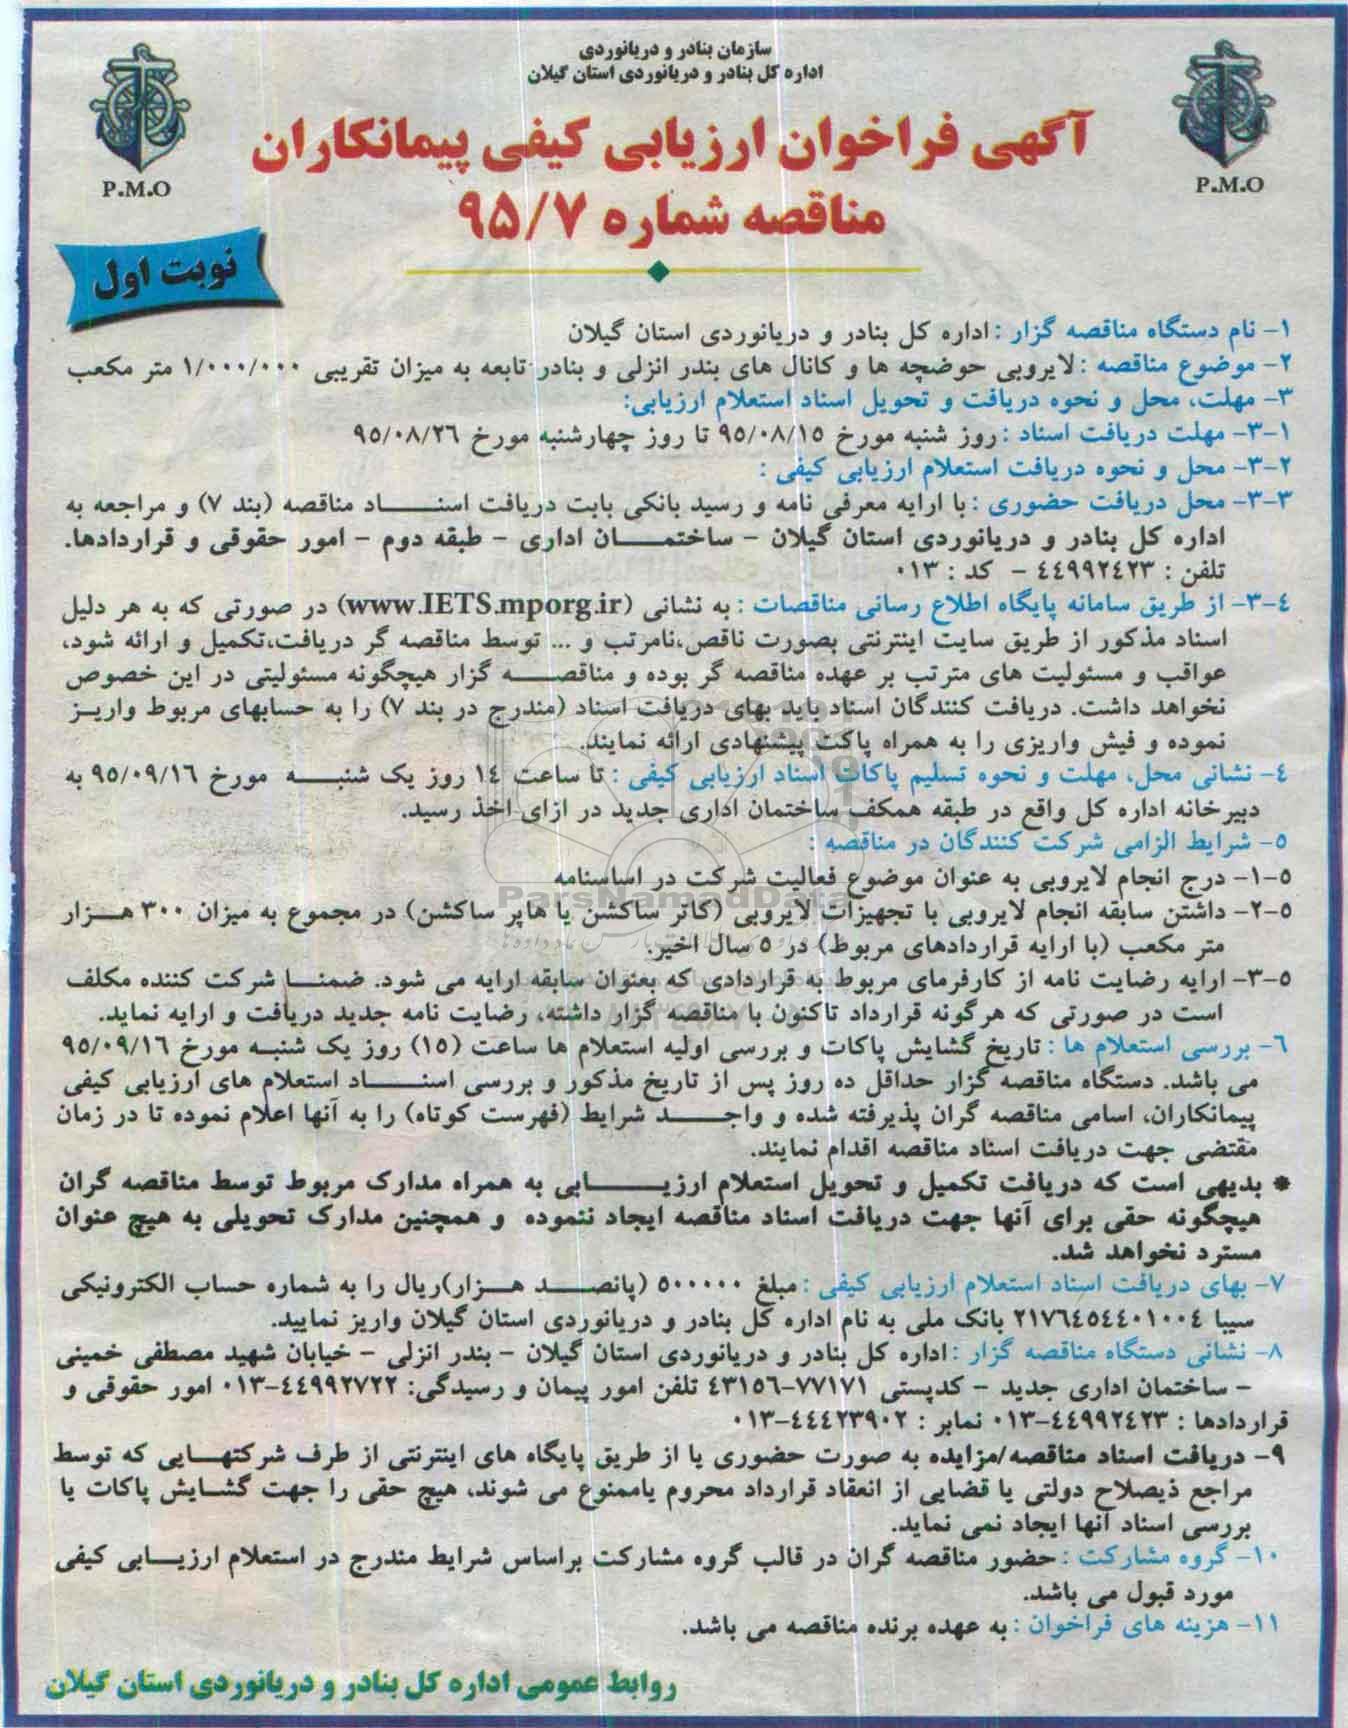 سازمان بنادر و دریانوردی
اداره کل بنادر و دریانوردی استان گیلان
P.M.O
P.M.O
آگهی فراخوان ارزیابی کیفی پیمانکاران
مناقصه شماره ۹۵/۷
نوبت اول
۱- نام دستگاه مناقصه گزار : اداره کل بنادر و دریانوردی استان گیلان
۲- موضوع مناقصه : لایروبی حوضچه ها و کانال های بندر انزلی و بنادر تابعه به میزان تقریبی ۱/۰۰۰/۰۰۰ متر مکعب
۳- مهلت، محل و نحوه دریافت و تحویل اسناد استعلام ارزیابی:
۳-۱- مهلت دریافت اسناد : روز شنبه مورخ ۹۵/۰۸/۱۵ تا روز چهارشنبه مورخ ۹۵/۰۸/۲۶
۳-۲- محل و نحوه دریافت استعلام ارزیابی کیفی :
۳-۳- محل دریافت حضوری : با ارایه معرفی نامه و رسید بانکی بابت دریافت اسناد مناقصه (بند ۷) و مراجعه به
اداره کل بنادر و دریانوردی استان گیلان - ساختمان اداری - طبقه دوم - امور حقوقی و قراردادها.
تلفن : ٤٤٩٩٢٤٢٣ - کد : ۰۱۳
۳-٤- از طریق سامانه پایگاه اطلاع رسانی مناقصات : به نشانی (www.IETS.mporg.ir) در صورتی که به هر دلیل
اسناد مذکور از طریق سایت اینترنتی بصورت ناقص،نامرتب و ... توسط مناقصه گر دریافت،تکمیل و ارائه شود،
عواقب و مسئولیت های مترتب بر عهده مناقصه گر بوده و مناقصه گزار هیچگونه مسئولیتی در این خصوص
نخواهد داشت. دریافت کنندگان اسناد باید بهای دریافت اسناد (مندرج در بند ۷) را به حسابهای مربوط واریز
نموده و فیش واریزی را به همراه پاکت پیشنهادی ارائه نمایند.
٤- نشانی محل، مهلت و نحوه تسلیم پاکات اسناد ارزیابی کیفی : تا ساعت ۱٤ روز یک شنبه مورخ ۹۵/۰۹/۱۶ به
دبیرخانه اداره کل واقع در طبقه همکف ساختمان اداری جدید در ازای اخذ رسید.
۵- شرایط الزامی شرکت کنندگان در مناقصه :
۵-۱- درج انجام لایروبی به عنوان موضوع فعالیت شرکت در اساسنامه
۵-۲- داشتن سابقه انجام لایروبی با تجهیزات لایروبی (کاتر ساکشن یا هاپر ساکشن) در مجموع به میزان ۳۰۰ هزار
متر مکعب (با ارایه قراردادهای مربوط) در ۵ سال اخیر.
۵-۳- ارایه رضایت نامه از کارفرمای مربوط به قراردادی که بعنوان سابقه ارایه می شود. ضمنا شرکت کننده مکلف
است در صورتی که هرگونه قرارداد تاکنون با مناقصه گزار داشته، رضایت نامه جدید دریافت و ارایه نماید.
۶- بررسی استعلام ها : تاریخ گشایش پاکات و بررسی اولیه استعلام ها ساعت (۱۵) روز یک شنبه مورخ ۹۵/۰۹/۱۶
می باشد. دستگاه مناقصه گزار حداقل ده روز پس از تاریخ مذکور و بررسی اسناد استعلام های ارزیابی کیفی
پیمانکاران، اسامی مناقصه گران پذیرفته شده و واجد شرایط (فهرست کوتاه) را به آنها اعلام نموده تا در زمان
مقتضی جهت دریافت اسناد مناقصه اقدام نمایند.
* بدیهی است که دریافت تکمیل و تحویل استعلام ارزیابی به همراه مدارک مربوط توسط مناقصه گران
هیچگونه حقی برای آنها جهت دریافت اسناد مناقصه ایجاد ننموده و همچنین مدارک تحویلی به هیچ عنوان
مسترد نخواهد شد.
۷- بهای دریافت اسناد استعلام ارزیابی کیفی : مبلغ ۵۰۰۰۰۰ (پانصد هزار)ریال را به شماره حساب الکترونیکی
سیبا ۲۱۷۶٤۵٤٤۰۱۰۰٤ بانک ملی به نام اداره کل بنادر و دریانوردی استان گیلان واریز نمایید.
۸- نشانی دستگاه مناقصه گزار : اداره کل بنادر و دریانوردی استان گیلان - بندر انزلی - خیابان شهید مصطفی خمینی
- ساختمان اداری جدید - کدپستی ۷۷۱۷۱-٤۳۱۵۶ تلفن امور پیمان و رسیدگی: ٤٤۹۹۲۷۲۲-۰۱۳ امور حقوقی و
قراردادها : ٤٤۹۹۲٤۲۳-۰۱۳ نمابر : ٤٤٤۲۳۹۰۲-۰۱۳
۹- دریافت اسناد مناقصه/مزایده به صورت حضوری یا از طریق پایگاه های اینترنتی از طرف شرکتهایی که توسط
مراجع ذیصلاح دولتی یا قضایی از انعقاد قرارداد محروم یاممنوع می شوند، هیچ حقی را جهت گشایش پاکات یا
بررسی اسناد آنها ایجاد نمی نماید.
۱۰- گروه مشارکت : حضور مناقصه گران در قالب گروه مشارکت براساس شرایط مندرج در استعلام ارزیابی کیفی
مورد قبول می باشد.
۱۱- هزینه های فراخوان : به عهده برنده مناقصه می باشد.
روابط عمومی اداره کل بنادر و دریانوردی استان گیلان
ParsNamadData